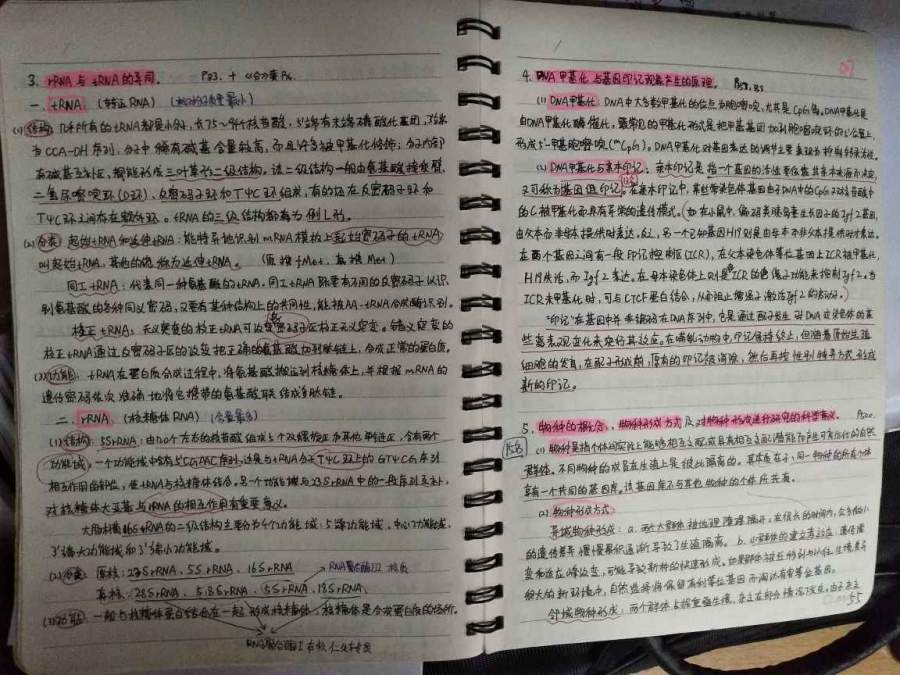 3. rRNA 与 tRNA的异同.
一. tRNA (转运RNA) (相对分子质量最小)
(1)结构: 几乎所有的tRNA都是小分子, 由75~94个核苷酸, 5'端有末端磷酸化基团, 3'端
为CCA-OH序列, 分子中稀有碱基含量较高, 而且许多被甲基化修饰; 分子内部
有碱基互补区, 都能形成三叶草形二级结构. 该二级结构一般由氨基酸接受臂.
二氢尿嘧啶环(D环), 反密码子环和TψC环组成, 有的还在反密码子环和
TψC环之间存在额外环. tRNA的三级结构都为倒L形.
(2)分类 起始tRNA和延伸tRNA: 能特异地识别mRNA模板上起始密码子的tRNA
叫起始tRNA, 其他的统称为延伸tRNA. (原核fMet, 真核Met)
同工tRNA: 代表同一种氨基酸的tRNA. 同工tRNA既要有不同的反密码子以识
别氨基酸的各种同义密码, 又要有某种结构上的共同性, 能被AA-tRNA合成酶识别.
校正tRNA: 无义突变的校正tRNA可以反密码子区校正无义突变. 错义突变的
校正tRNA通过反密码子区的改变把正确的氨基酸加到肽链上, 合成正常的蛋白质.
(3)功能: tRNA在蛋白质合成过程中, 将氨基酸搬运到核糖体上, 并根据mRNA的
遗传密码依次准确地将它携带的氨基酸联结成多肽链.
二. rRNA (核糖体RNA) (含量最多)
(1)结构: 5SrRNA: 由120个左右的核苷酸组成 5个双螺旋区和其他单链区, 含有两个
功能域, 一个功能域中含有5'CGAAC序列, 这是与tRNA分子TψC环上的GTψCG序列
相互作用的部位, 使tRNA与核糖体结合. 另一个功能域与23SrRNA中的一段序列互补,
对核糖体大亚基与rRNA的相互作用有重要意义.
大肠杆菌16SrRNA的二级结构主要分为4个功能域: 5'端功能域, 中心功能域,
3'端大功能域和3'端小功能域.
(2)分类 原核: 23SrRNA, 5SrRNA, 16SrRNA RNA聚合酶Ⅲ 核质
真核: 28SrRNA, 5.8SrRNA, 5SrRNA, 18SrRNA,
(3)功能: 一般与核糖体蛋白结合在一起, 形成核糖体, 核糖体是合成蛋白质的场所.
RNA聚合酶Ⅰ在核仁
4. DNA甲基化与基因印记现象产生的原理.
(1) DNA甲基化: DNA中大多数甲基化的位点为胞嘧啶, 尤其是CpG岛, DNA甲基化是
由DNA甲基化酶催化, 最常见的甲基化形式是把甲基基团加到胞嘧啶环的5'位置上,
形成5'-甲基胞嘧啶(ᵐCpG). DNA甲基化对基因表达的调节主要表现为抑制转录活性.
(2) DNA甲基化与亲本印记: 亲本印记是指一个基因的活性要依靠其亲本来源而决定,
又可称为基因组印记. 在亲本印记中, 某些常染色体基因由于DNA中的CpG双核苷酸中
的C被甲基化而具有异常的遗传模式. (如在小鼠中, 编码类胰岛素生长因子的Igf2基因,
由父本而非母本提供时表达, 反之, 另一个已知基因H19则是由母本而非父本提供时才表达.
在两个基因之间有一段印记控制区(ICR), 在父本染色体等位基因上ICR被甲基化,
H19失活, 而Igf2表达. 在母本染色体上则是ICR的绝缘子功能来控制Igf2. 当
ICR未甲基化时, 可与CTCF蛋白结合, 从而阻止增强子激活Igf2的启动子.)
"印记"在基因中并未编码在DNA序列中, 它是通过配子发生对DNA或染色体的某
些容表观变化来实行其效应. 在哺乳动物中, 印记保持终生, 但随着原始生殖
细胞的发育, 在配子形成前, 原有的印记被消除, 然后再按性别特异方式形成
新的印记.
5. 物种的概念, 物种形成方式及对物种形成进行研究的科学意义.
(1) 物种是指个体间实际上能够相互交配或具有相互交配潜能而产生可育后代的自然
群体. 不同物种的成员在生殖上是彼此隔离的. 其本质在于, 同一物种的所有个体
享有一个共同的基因库, 该基因库不与其他物种的个体所共有.
(2) 物种形成方式
异域物种形成: a. 两个大群体被地理障碍隔开, 在很长的时间内, 众多微小
的遗传差异慢慢累积逐渐导致了生殖隔离. b. 小群体的建立者效应: 遗传漂
变和适应峰改变, 可能导致新种的快速形成.
很大的新环境中, 自然选择将保留有利等位基因而淘汰有害等位基因.
邻域物种形成: 两个群体占据重叠生境,
55